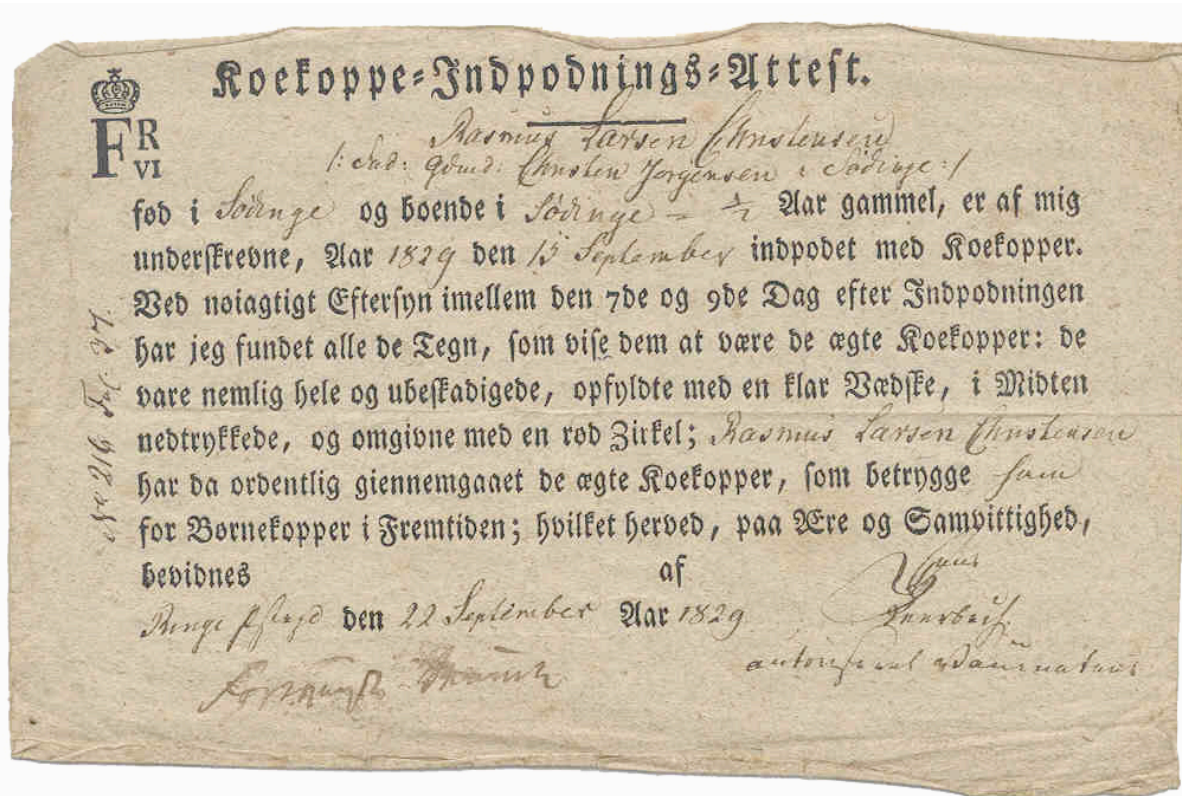 Koekoppe-Indpodnings-Attest.
F R VI
Rasmus Larsen Christensen
/: Christen Jørgensen i Södinge :/
fød i Södinge og boende i Södinge - ½ Aar gammel, er af mig
underskrevne, Aar 1829 den 15 September indpodet med Koekopper.
Ved nøiagtigt Eftersyn imellem den 7de og 9de Dag efter Indpodningen
har jeg fundet alle de Tegn, som vise dem at være de ægte Koekopper: de
vare nemlig hele og ubeskadigede, opfyldte med en klar Vædske, i Midten
nedtrykkede, og omgivne med en rød Zirkel; Rasmus Larsen Christensen
har da ordentlig giennemgaaet de ægte Koekopper, som betrygge ham
for Børnekopper i Fremtiden; hvilket herved, paa Ære og Samvittighed,
bevidnes af
Ringe den 22 September Aar 1829
autoriseret Vaccinateur
No 216 Fol. 37.